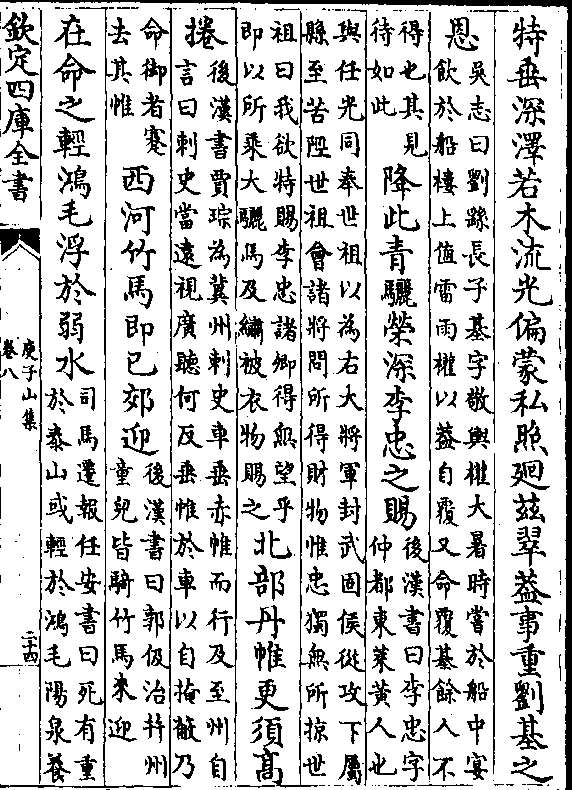 特垂深澤若木流光偏蒙私照廻茲翠葢事重劉基之
恩
吳志曰劉繇長子基字敬輿權大暑時嘗於船中宴
飲於船樓上值雷雨權以葢自覆又命覆基餘人不
得也其見
待如此
降此青驪榮深李忠之賜
後漢書曰李忠字
仲都東萊黃人也
與任光同奉世祖以為右大將軍封武固侯從攻下屬
縣至苦陘世祖會諸將問所得財物惟忠獨無所掠世
祖曰我欲特賜李忠諸卿得無望乎
即以所乘大驪馬及繡被衣物賜之
北部丹帷更須髙
捲
後漢書賈琮為冀州刺史車垂赤帷而行及至州自
言曰刺史當遠視廣聽何反垂帷於車以自掩蔽乃
命御者褰
去其帷
西河竹馬即已郊迎
後漢書曰郭伋治并州
童兒皆騎竹馬來迎
在命之輕鴻毛浮於弱水
司馬遷報任安書曰死有重
於泰山或輕於鴻毛陽泉養
欽定四庫全書
庾子山集
卷八
二十四